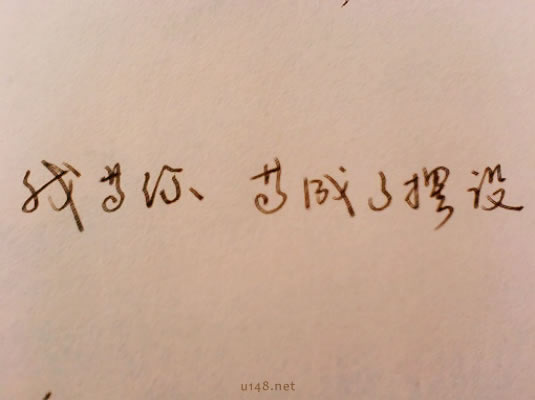 我等你 等成了摆设
u148.net